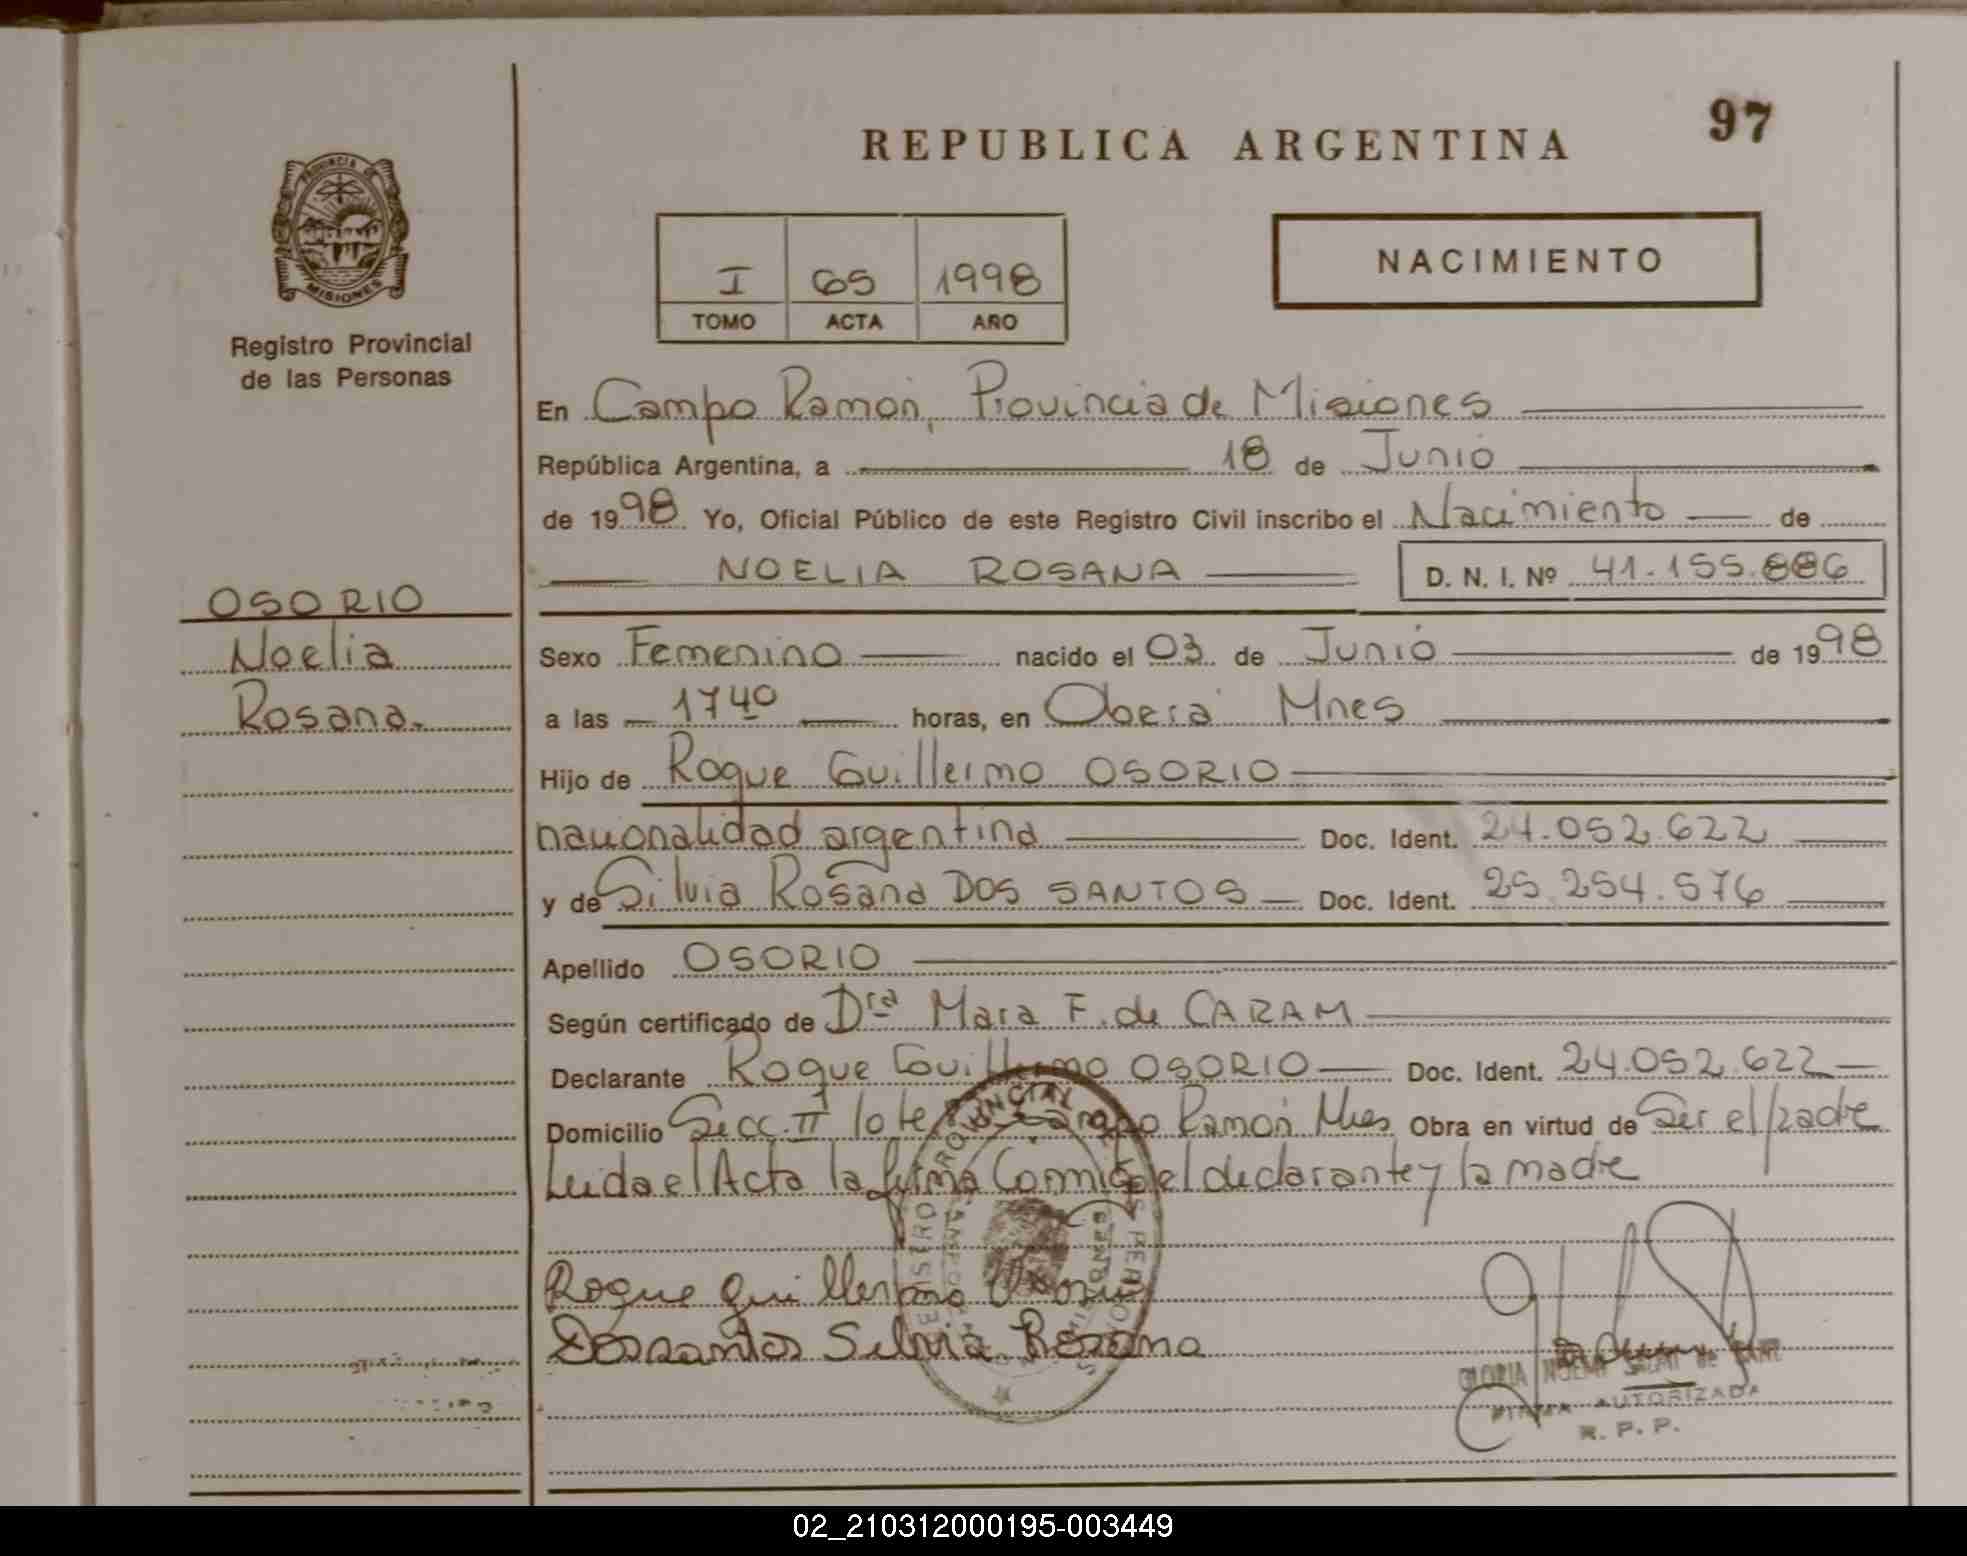 97
REPUBLICA ARGENTINA
NACIMIENTO
I 65 1998
TOMO ACTA AÑO
PROVINCIA DE
MISIONES
Registro Provincial
de las Personas
OSORIO
Noelia
Rosana.
En Campo Ramón, Provincia de Misiones
República Argentina, a 18 de Junio
de 1998 Yo, Oficial Público de este Registro Civil inscribo el Nacimiento de
NOELIA ROSANA D. N. I. Nº 41.155.886
Sexo Femenino nacido el 03 de Junio de 1998
a las 1740 horas, en Oberá Mnes
Hijo de Roque Guillermo OSORIO
nacionalidad argentina Doc. Ident. 24.052.622
y de Silvia Rosana DOS SANTOS Doc. Ident. 25.254.576
Apellido OSORIO
Según certificado de Dra Mara F. de CARAM
Declarante Roque Guillermo OSORIO Doc. Ident. 24.052.622
Domicilio Secc. II lote Campo Ramón Mnes Obra en virtud de Ser el padre
Leida el Acta la firma Conmigo el declarante y la madre
Roque Guillermo Osorio
Dossantos Silvia Rosana
GLORIA NOEMI de
FIRMA AUTORIZADA
R. P. P.
02_210312000195-003449